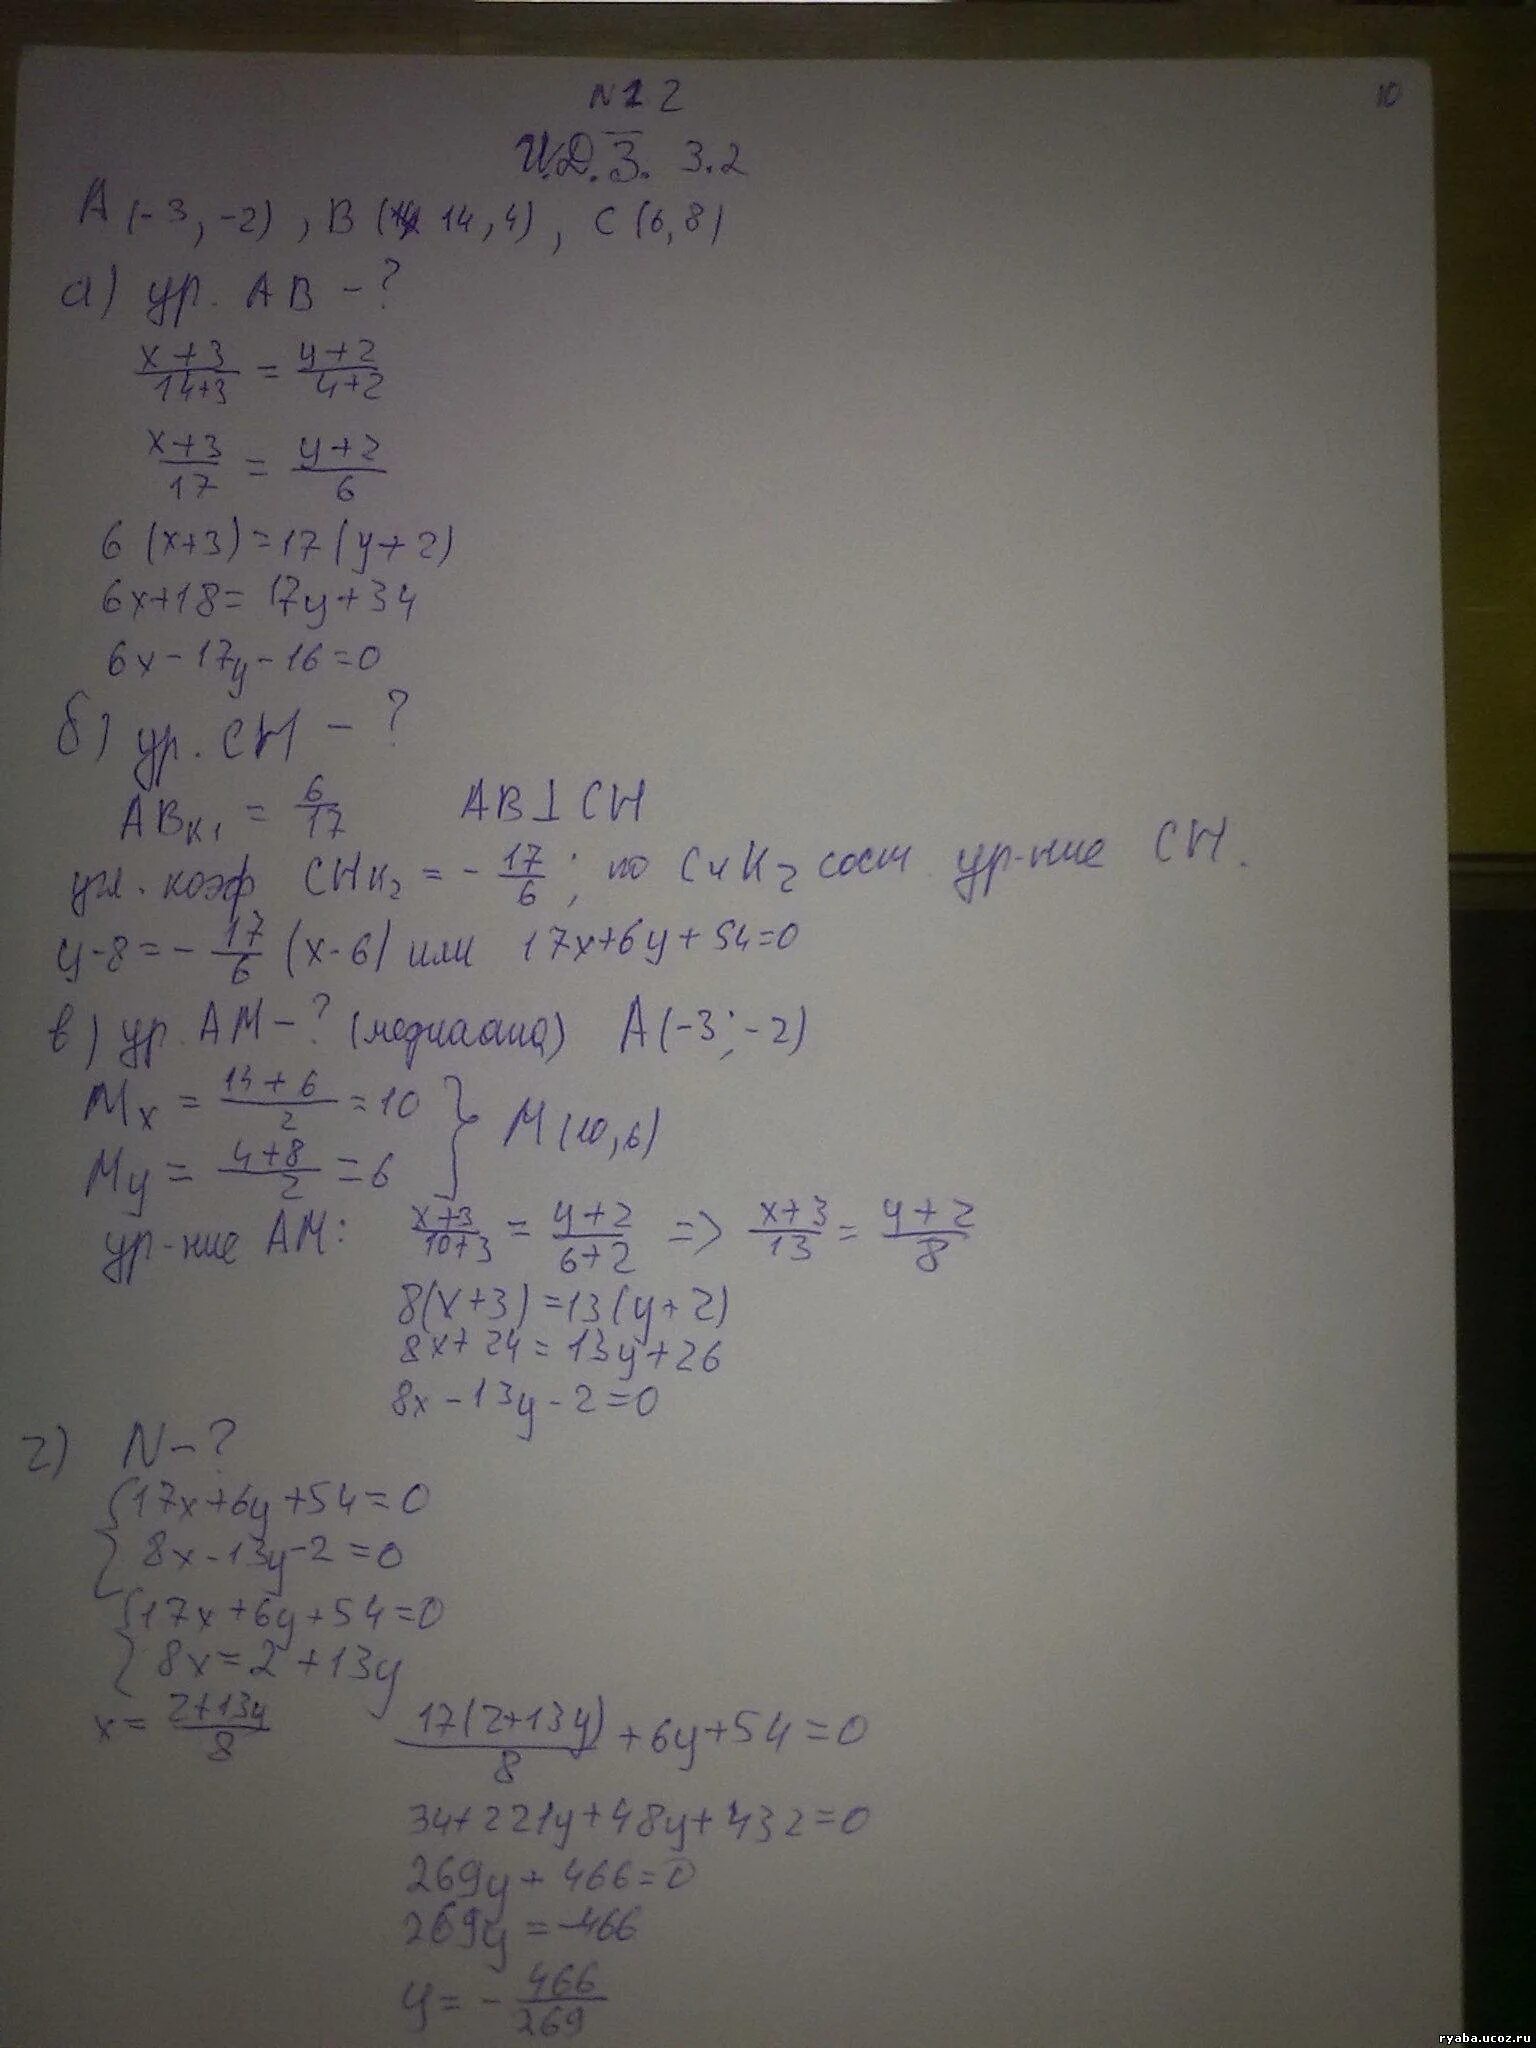 N 12
10
И.Д.З. 3.2
A(-3, -2), B(14, 4), C(6, 8)
а) ур. AB - ?
(x+3)/(14+3) = (y+2)/(4+2)
(x+3)/17 = (y+2)/6
6(x+3)=17(y+2)
6x+18=17y+34
6x-17y-16=0
б) ур. CH - ?
AB k1 = 6/17 AB⊥CH
угл. коэф CH k2 = -17/6; по C и K2 сост. ур-ние CH.
y-8=-17/6(x-6) или 17x+6y+54=0
в) ур. AM-? (медиаана) A(-3;-2)
Mx = (14+6)/2 = 10
My = (4+8)/2 = 6 } M(10,6)
ур-ние AM: (x+3)/(10+3) = (y+2)/(6+2) => (x+3)/13 = (y+2)/8
8(x+3)=13(y+2)
8x+24=13y+26
8x-13y-2=0
г) N-?
{17x+6y+54=0
8x-13y-2=0
{17x+6y+54=0
8x=2+13y
x=(2+13y)/8 17(2+13y)/8+6y+54=0
34+221y+48y+432=0
269y+466=0
269y=-466
y=-466/269
ryaba.ucoz.ru